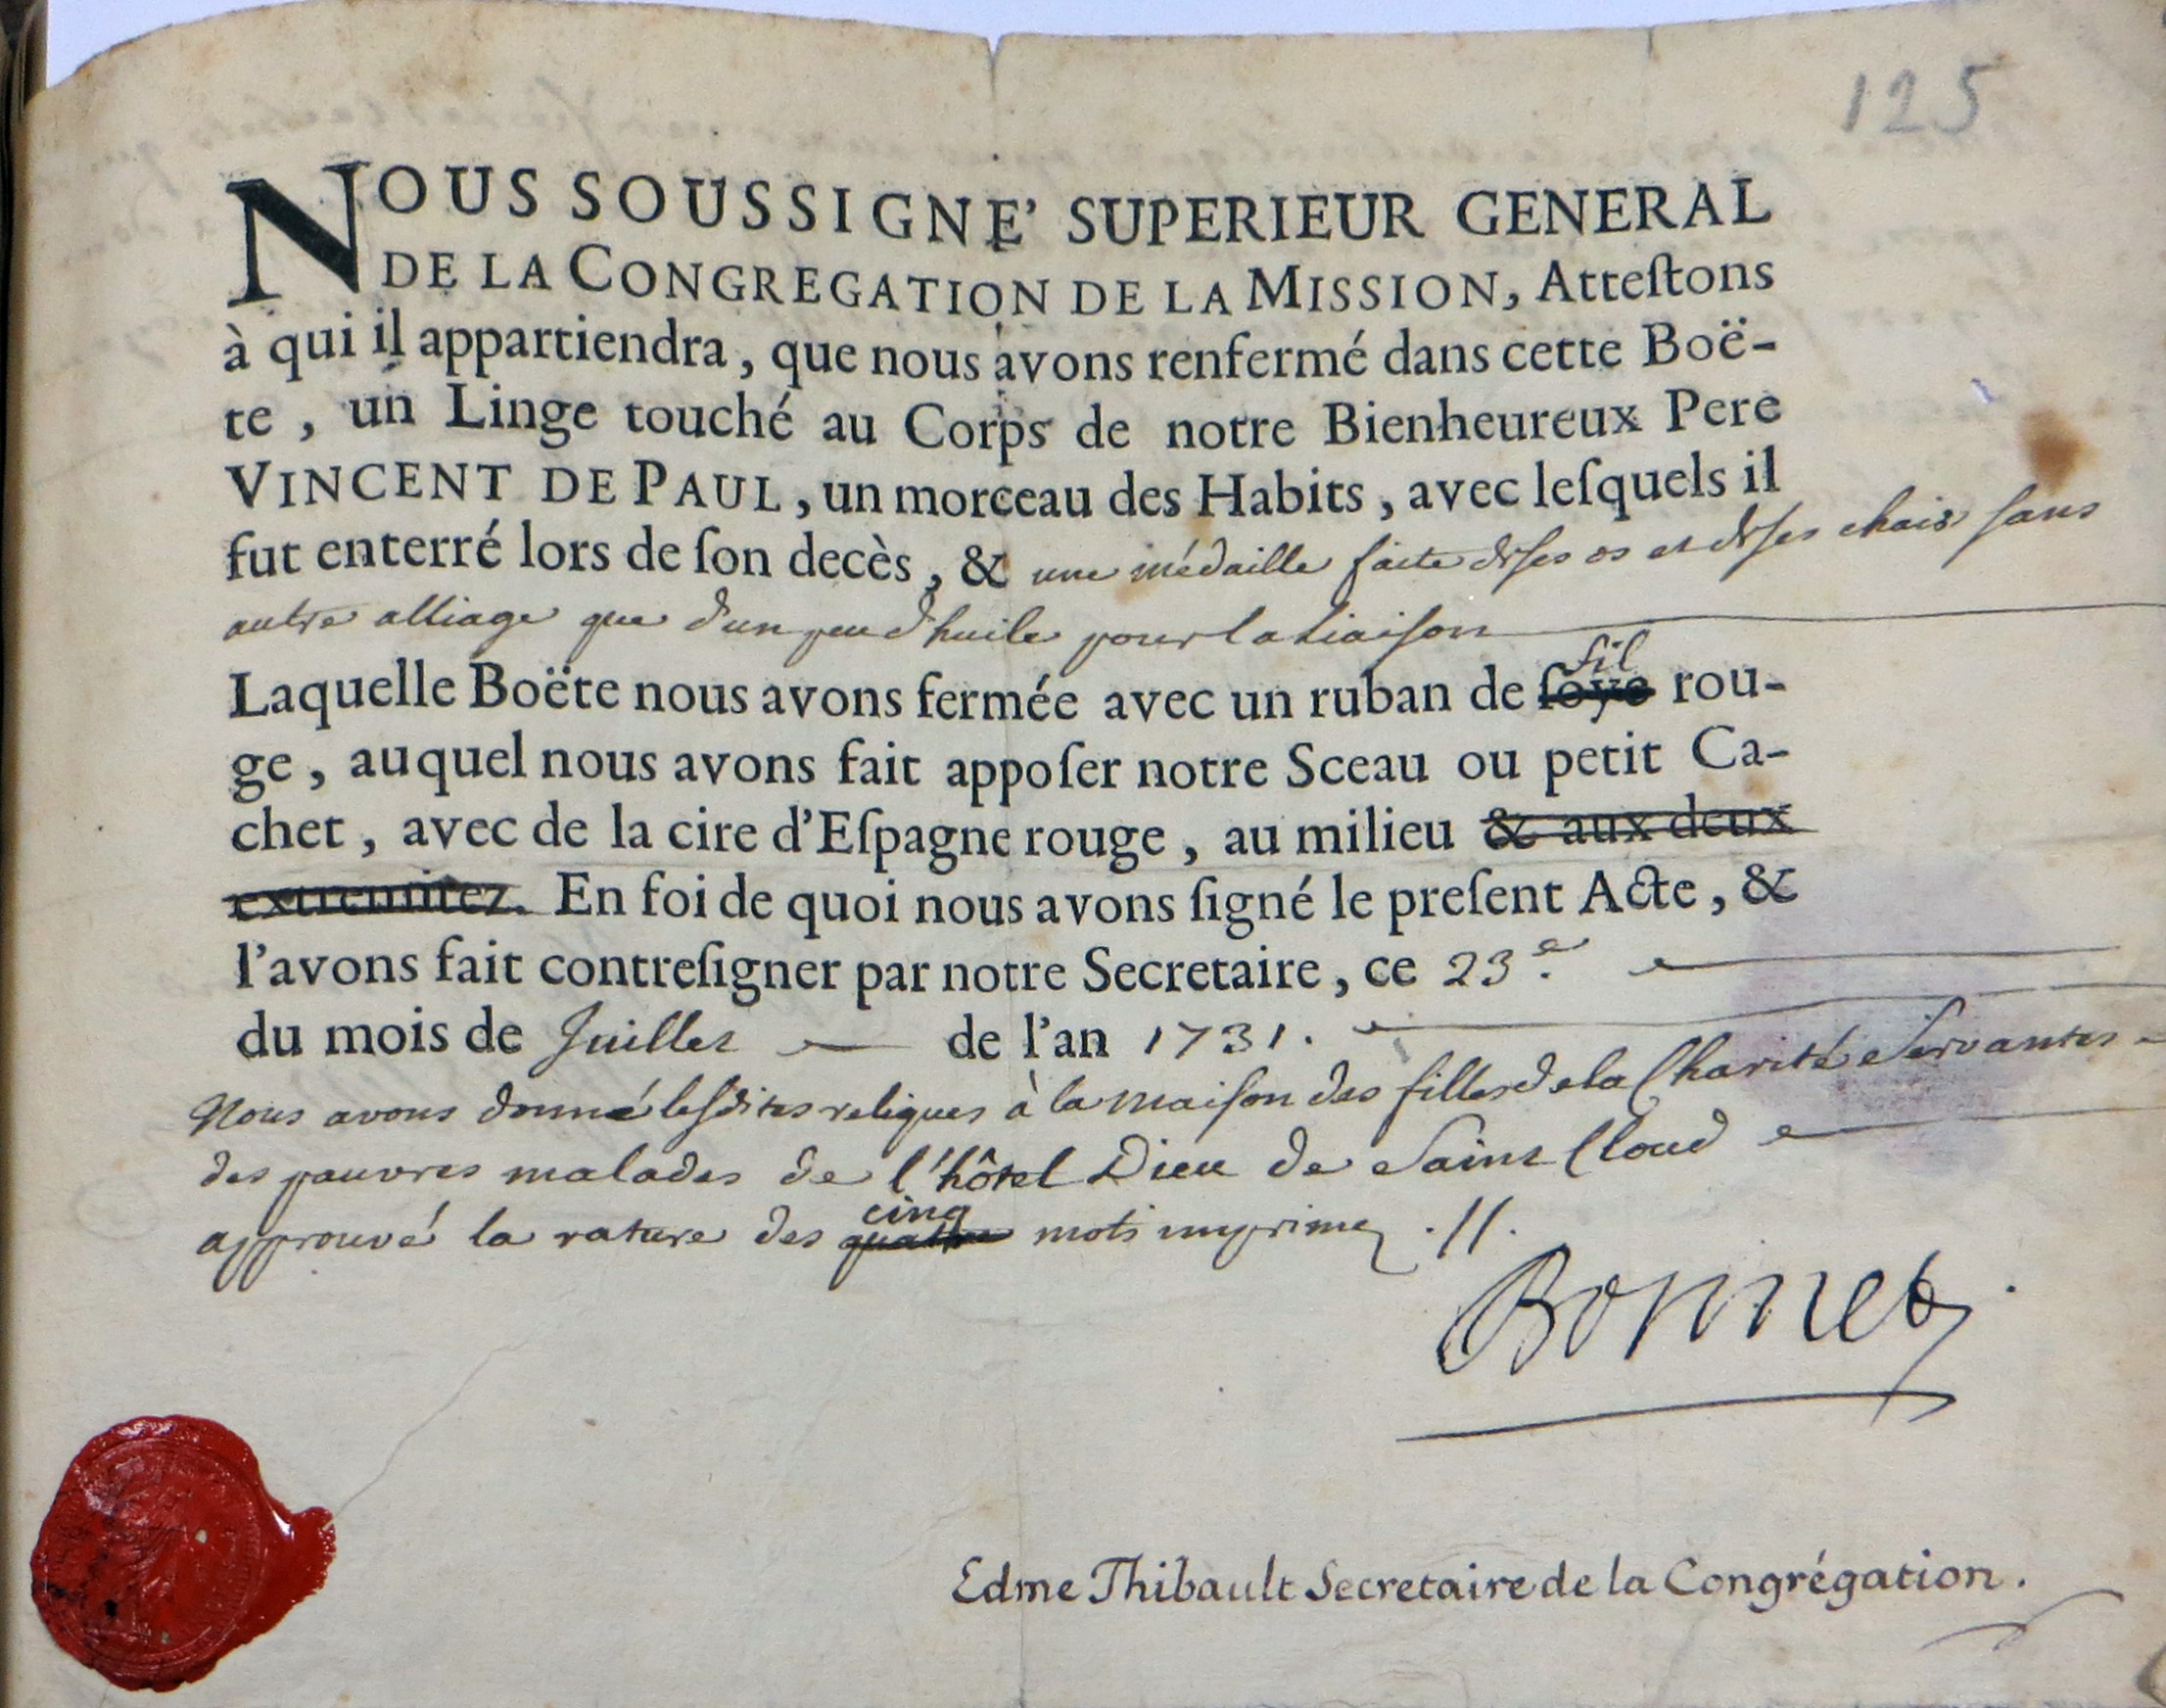 125
NOUS SOUSSIGNE' SUPERIEUR GENERAL
DE LA CONGREGATION DE LA MISSION, Atteſtons
à qui il appartiendra, que nous avons renfermé dans cette Boë-
te, un Linge touché au Corps de notre Bienheureux Pere
VINCENT DE PAUL, un morceau des Habits, avec leſquels il
fut enterré lors de ſon decès, & une médaille faite de ſes os et de ſes chairs ſans
autre alliage que d'un peu d'huile pour la liaiſon
fil
Laquelle Boëte nous avons fermée avec un ruban de ſoye rou-
ge, auquel nous avons fait appoſer notre Sceau ou petit Ca-
chet, avec de la cire d'Eſpagne rouge, au milieu & aux deux
extremitez. En foi de quoi nous avons ſigné le preſent Acte, &
l'avons fait contreſigner par notre Secretaire, ce 23e.
du mois de Juillet de l'an 1731.
Nous avons donné leſdites reliques à la maiſon des filles de la Charité Servantes
des pauvres malades de l'hôtel Dieu de Saint Cloud
cinq
approuvé la rature des quattre mots imprimez .//.
Bonnet
Edme Thibault Secretaire de la Congrégation.